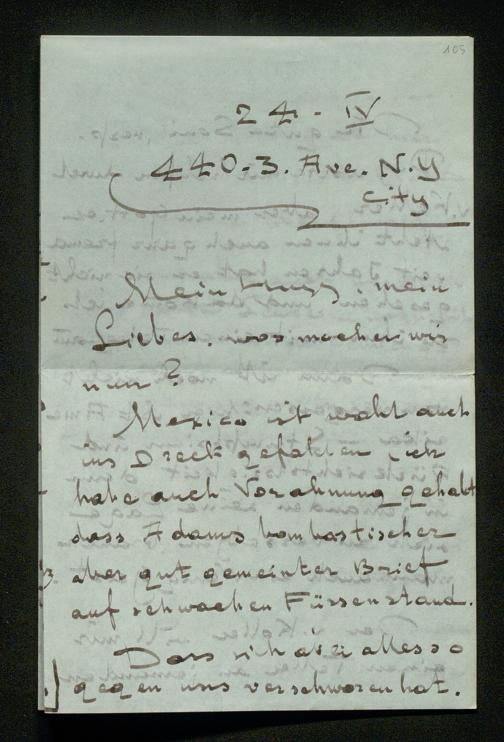 105
24 - IV
440-3. Ave. N.Y
City
Mein Hugs, mein
Liebes, was machen wir
nun?
Mexico ist wohl auch
ins Dreck gefallen ich
habe auch Vorahnung gehabt
dass Adams bombastischer
aber gut gemeinter Brief
auf schwachen Füssen stand.
Dass sich aber alles so
gegen uns verschworen hat.